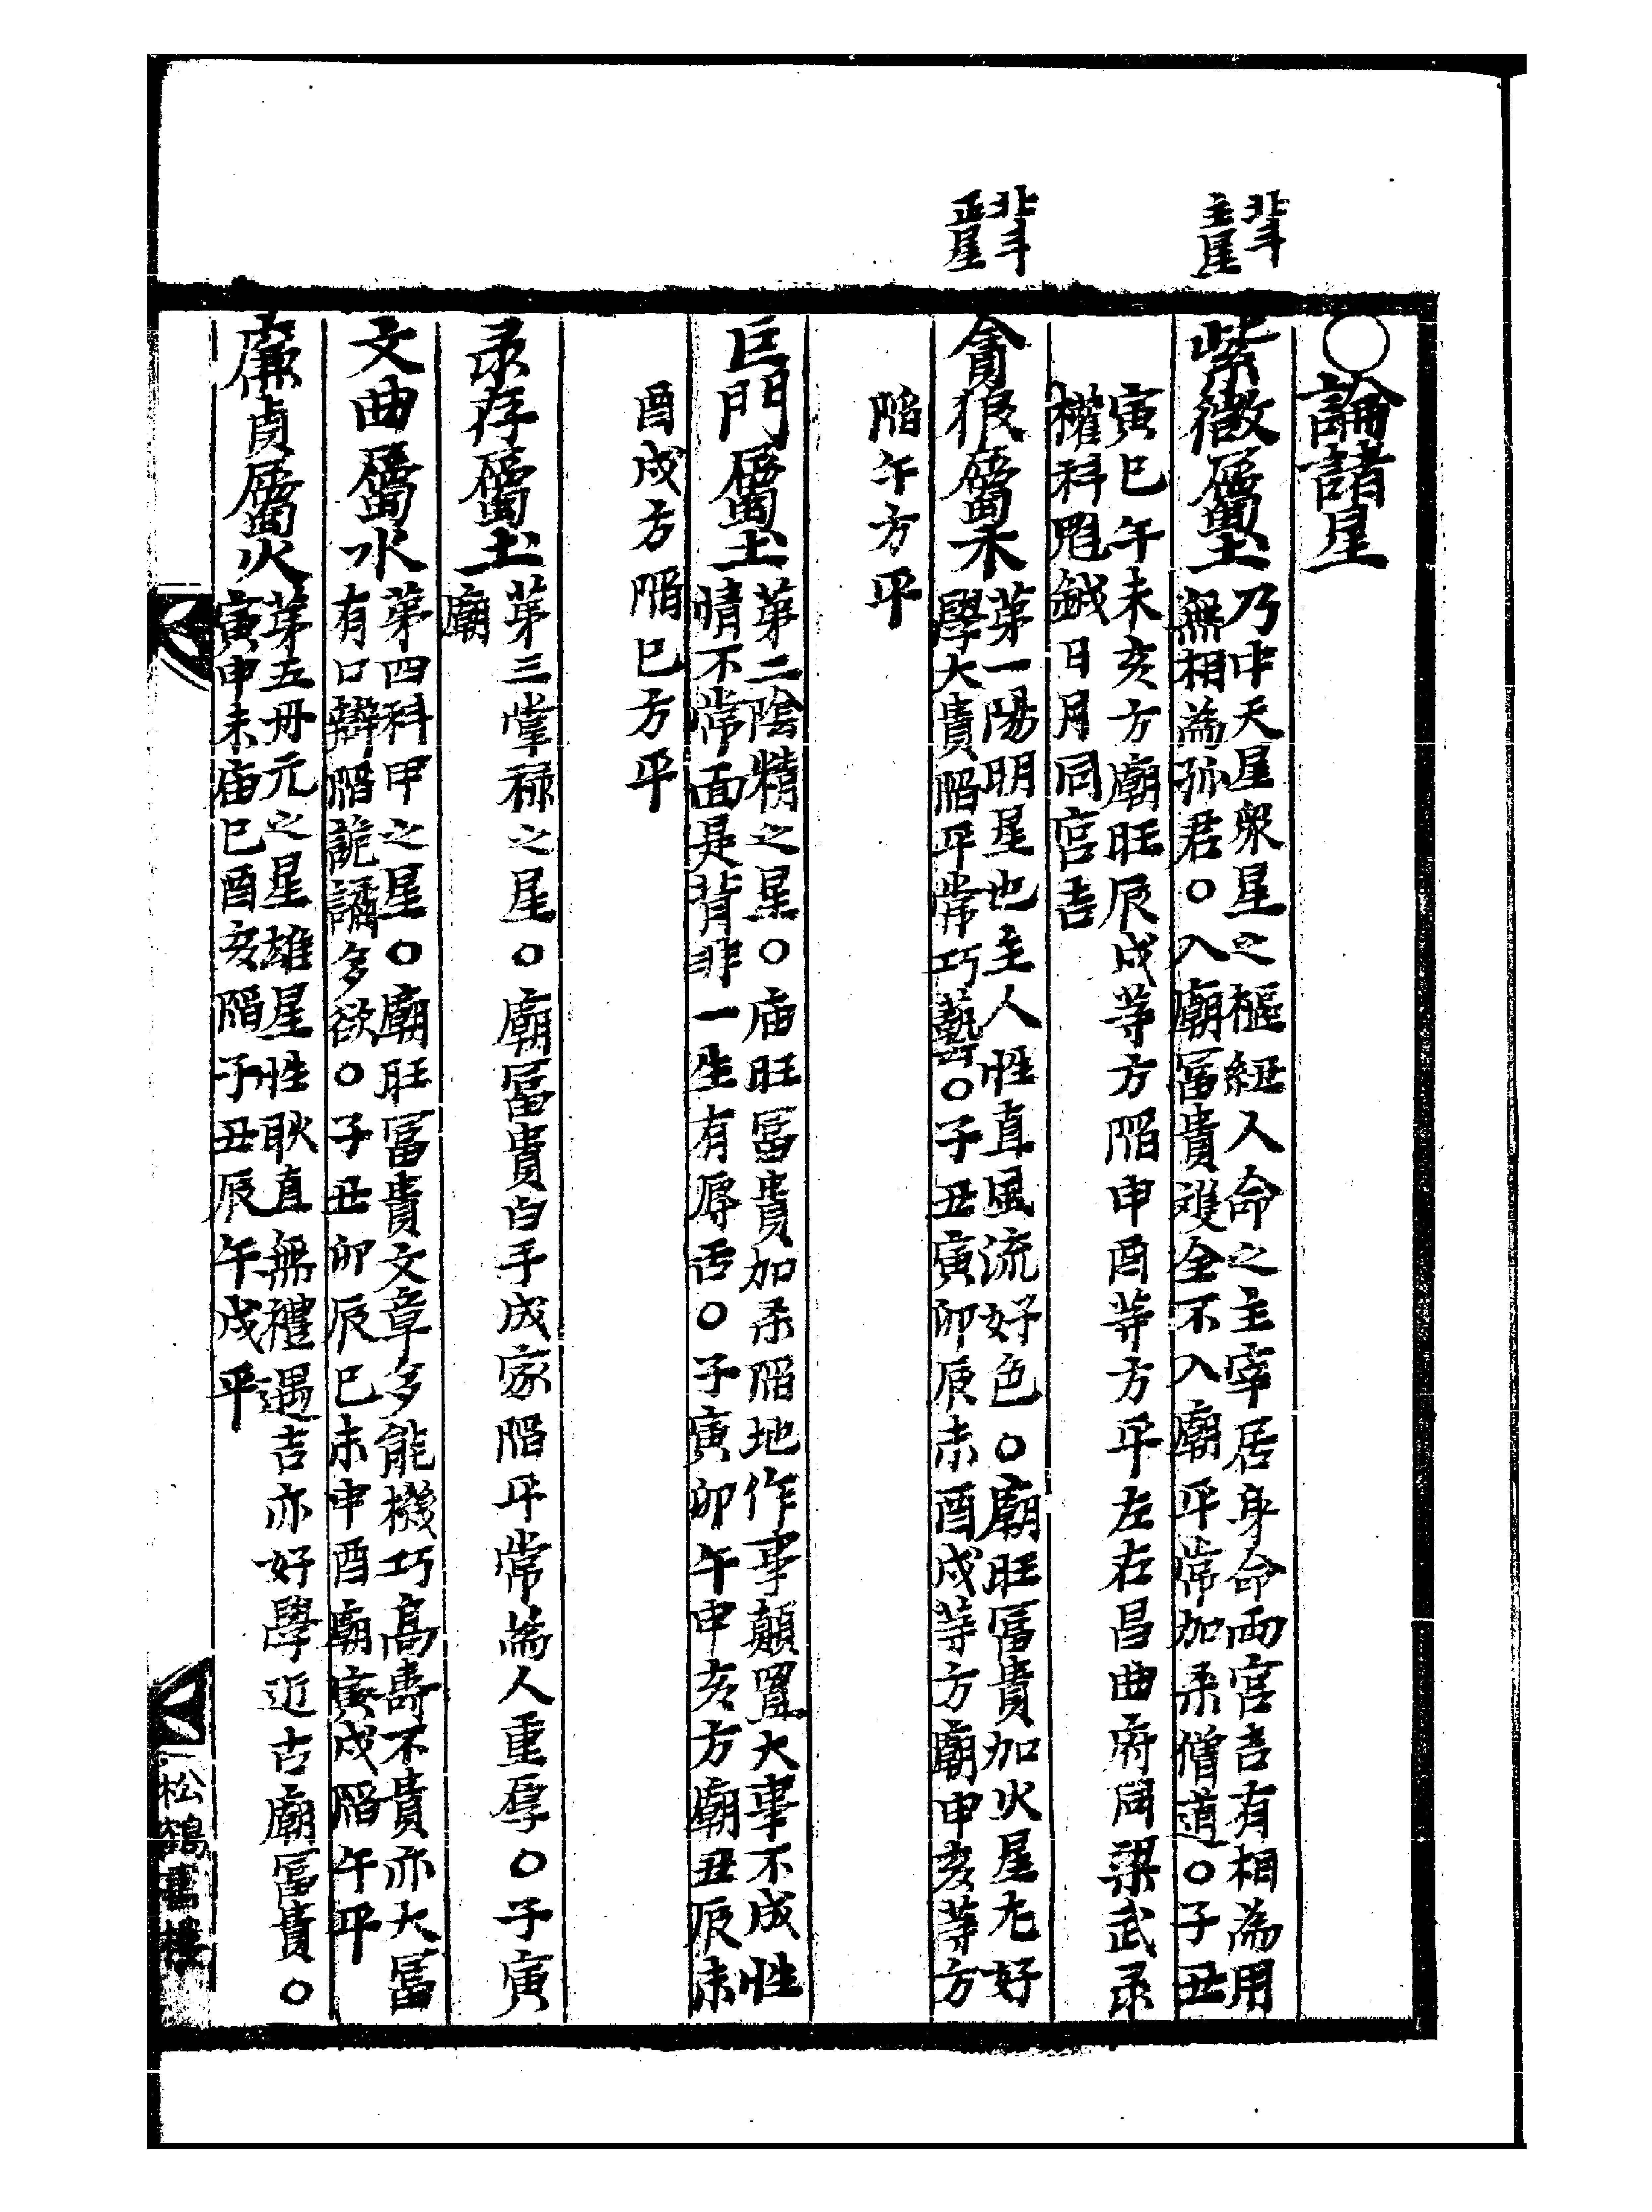 北斗
主星
北斗
正星
〇論諸星
紫微屬土
乃中天星衆星之樞紐人命之主宰居身命两宫吉有相為用
無相為孤君〇入廟冨貴雙全不入廟平常加杀僧道〇子丑
寅巳午未亥方廟旺辰戌等方陷申酉等方平左右昌曲府同梁武彔
權科魁鉞日月同宫吉
貪狼屬木
苐一陽明星也主人性直風流好色〇廟旺冨貴加火星尢好
學大貴陷平常巧藝〇子丑寅卯辰未酉戌等方廟申亥等方
陷午方平
巨門屬土
苐二陰精之星〇庙旺冨貴加杀陷地作事顛置大事不成性
情不常面是背非一生有唇舌〇子寅卯午申亥方廟丑辰未
酉戌方陷巳方平
彔存屬土
苐三掌禄之星〇廟冨貴白手成家陷平常為人重厚〇子寅
廟
文曲屬水
苐四科甲之星〇廟旺冨貴文章多能機巧高壽不貴亦大冨
有口辯陷詭譎多欲〇子丑卯辰巳未申酉廟寅戌陷午平
廉貞屬火
苐五丹元之星雄星性耿直無禮遇吉亦好學近古廟冨貴〇
寅申未庙巳酉亥陷子丑辰午戌平
松鶴書樓